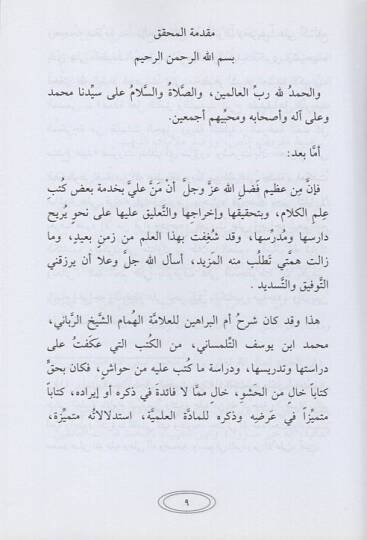 مقدمة المحقق
بسم الله الرحمن الرحيم
والحمدُ لله ربِّ العالمين، والصَّلاةُ والسَّلامُ على سيِّدنا محمد
وعلى آله وأصحابه ومحبِّيهم أجمعين.
أمَّا بعد:
فإنَّ مِن عظيم فَضلِ الله عزَّ وجلَّ أن مَنَّ عليَّ بخدمة بعض كُتبِ
عِلمِ الكلام، وبتحقيقها وإخراجِها والتَّعليق عليها على نحوٍ يُريح
دارسها ومُدرِّسها، وقد شُغِفت بهذا العلم من زمنٍ بعيدٍ، وما
زالت همَّتي تَطلُب منه المَزيد، أسأل الله جلَّ وعلا أن يرزقني
التَّوفيق والتَّسديد .
هذا وقد كان شرحُ أم البراهين للعلامَّة الهُمام الشَّيخ الرَّباني،
محمد ابن يوسف التِّلمساني، من الكُتب التي عكَفتُ على
دراستها وتدريسها، ودراسة ما كُتب عليه من حواشٍ، فكان بحقٍّ
كتاباً خالٍ من الحَشوِ، خالٍ ممَّا لا فائدةَ في ذكره أو إيراده، كتاباً
متميِّزاً في عَرضِه وذكره للمادَّة العلميَّة، استدلالاتُه متميِّزة،
٩